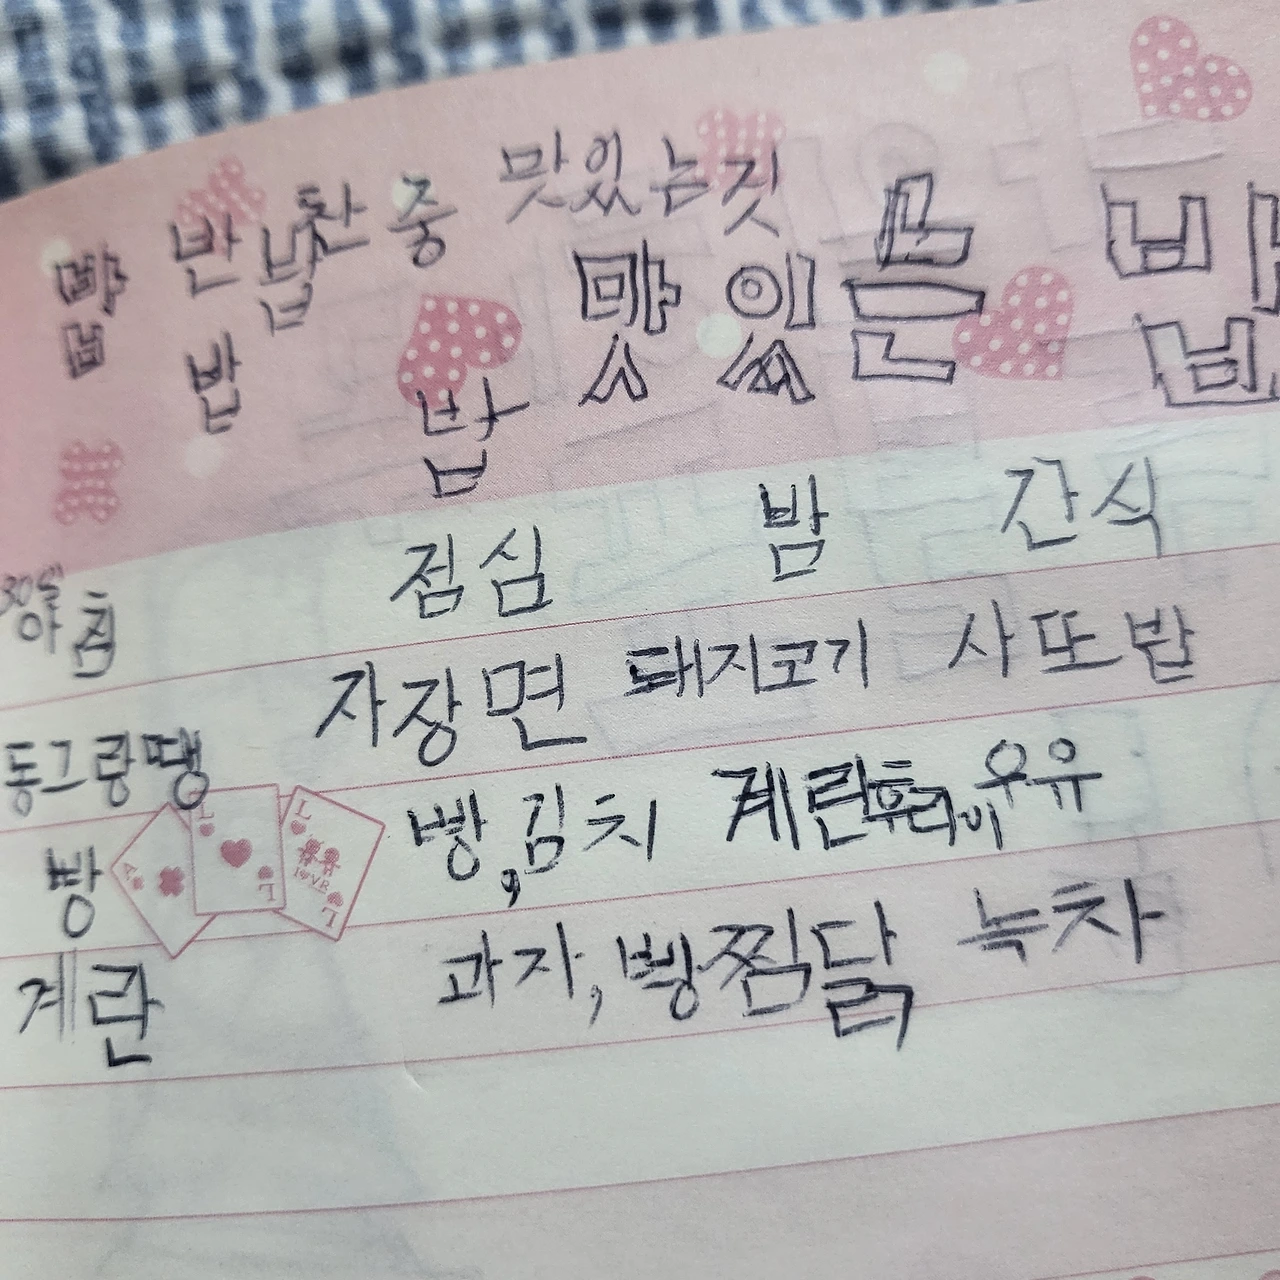 반찬 중 맛있는 것
밥 밥 밥
맛있는 밥
밥
30일
아침 점심 밤 간식
동그랑땡 자장면 돼지고기 사또밥
빵 빵, 김치 계란후라이 우유
계란 과자, 빵 찜닭 녹차